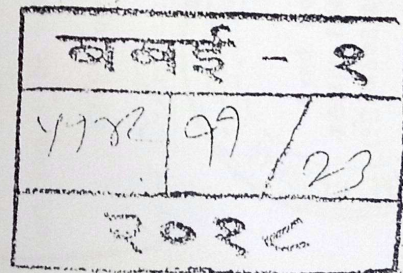 बबई - १
५१४२ ११ / २३
२०१८